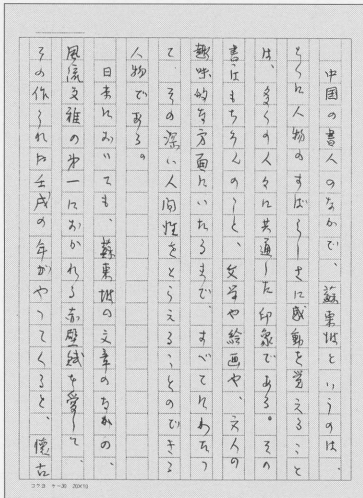 中国の書人のなかで、蘇東坡というのは、
とくに人物のすばらしさに感動を覚えること
は、多くの人々に共通した印象である。その
書はもちろんのこと、文学や絵画や、文人の
趣味的な方面にいたるまで、すべてにわたっ
て、その深い人間性をとらえることのできる
人物である。
日本においても、蘇東坡の文章のなかの、
風流文雅の第一におかれる赤壁賦を愛して、
その作られた壬戌の年がやってくると、懐古
コクヨ ケ-30 20×10